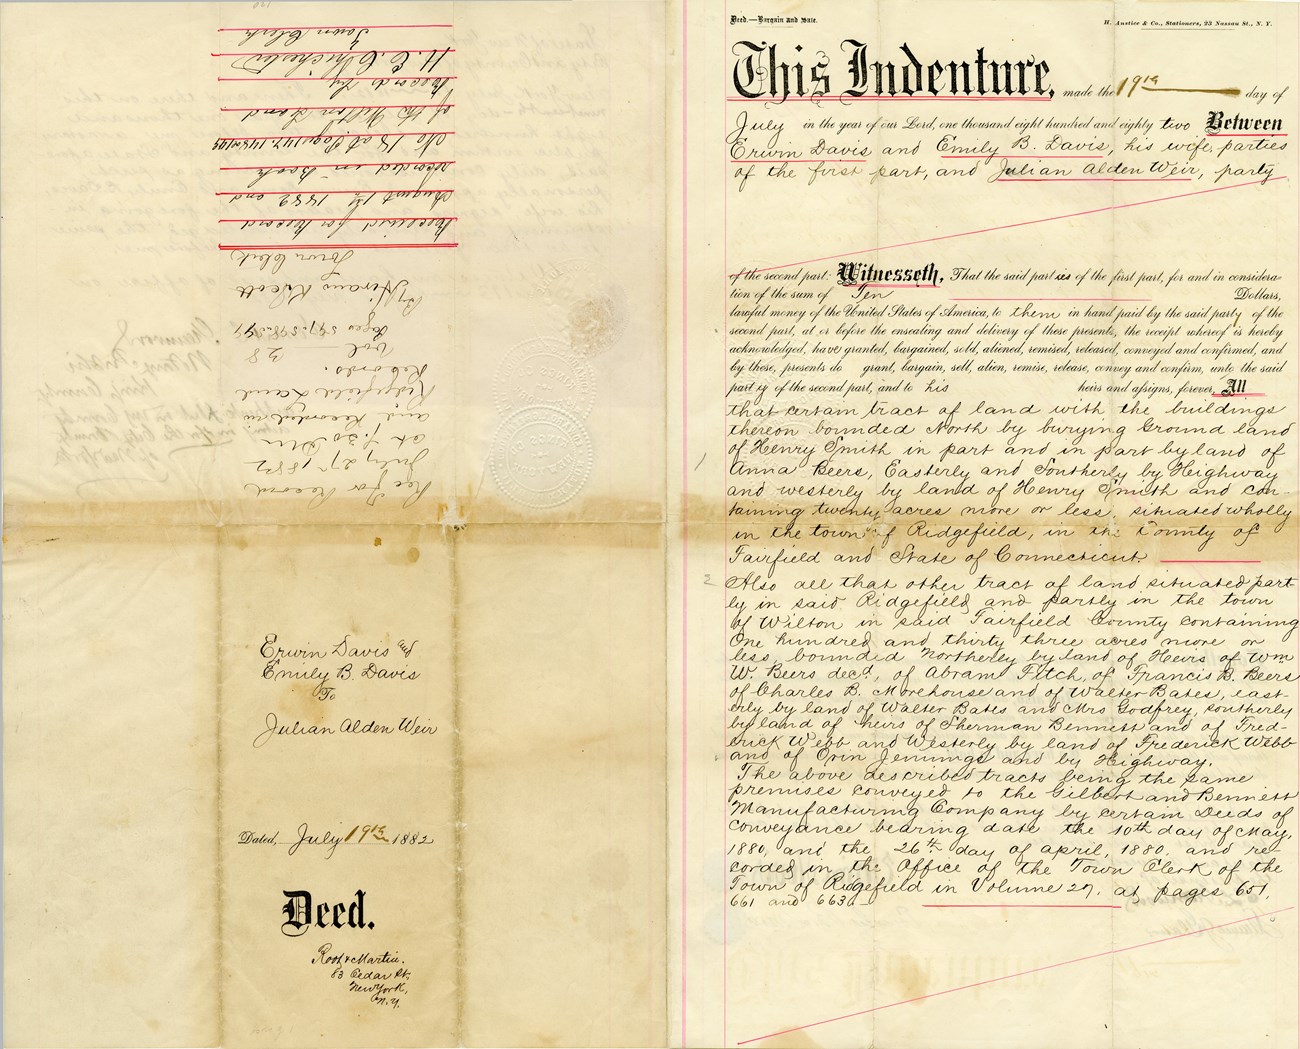 Received for Record
August 1st 1882 and
recorded in Book
No 18 at Page 147.148 &149
of the Wilton Land
Records by
H. E. Chichester
Town Clerk
Rec for Record
July 27th 1882
at 7.30 P.M.
and Recorded in
Ridgefield Land
Records.
Vol 28
Pages 597.598.599
By Hiram K Scott
Town Clerk
Erwin Davis and
Emily B. Davis
To
Julian Alden Weir
Dated, July 19th 1882
Deed.
Root & Martin.
83 Cedar St.
New York,
N.Y.
Deed.—Bargain and Sale.
H. Anstice & Co., Stationers, 23 Nassau St., N. Y.
This Indenture, made the 19th day of
July in the year of our Lord, one thousand eight hundred and eighty two Between
Erwin Davis and Emily B. Davis, his wife, parties
of the first part, and Julian Alden Weir, party
of the second part: Witnesseth, That the said parties of the first part, for and in considera-
tion of the sum of Ten Dollars,
lawful money of the United States of America, to them in hand paid by the said party of the
second part, at or before the ensealing and delivery of these presents, the receipt whereof is hereby
acknowledged, have granted, bargained, sold, aliened, remised, released, conveyed and confirmed, and
by these, presents do grant, bargain, sell, alien, remise, release, convey and confirm, unto the said
party of the second part, and to his heirs and assigns, forever, All
that certain tract of land with the buildings
thereon bounded North by burying Ground land
of Henry Smith in part and in part by land of
1
Anna Beers, Easterly and Southerly by Heighway
and westerly by land of Henry Smith and con-
taining twenty acres more or less, situated wholly
in the town of Ridgefield, in the County of
Fairfield and State of Connecticut.
2
Also all that other tract of land situated part-
ly in said Ridgefield and partly in the town
of Wilton in said Fairfield County containing
One hundred and thirty three acres more or
less, bounded Northerly by land of Heirs of Wm
W. Beers decd, of Abram Fitch, of Francis B. Beers
of Charles B. Morehouse and of Walter Bates, east-
erly by land of Walter Bates and Mrs Godfrey, southerly
by land of heirs of Sherman Bennett and of Fred-
erick Webb and Westerly by land of Frederick Webb
and of Orin Jennings and by Highway.
The above described tracts being the same
premises conveyed to the Gilbert and Bennett
Manufacturing Company by certain Deeds of
conveyance bearing date the 10th day of May,
1880, and the 26th day of April, 1880, and re-
corded in the Office of the Town Clerk of the
Town of Ridgefield in Volume 27, at pages 651,
661 and 663.